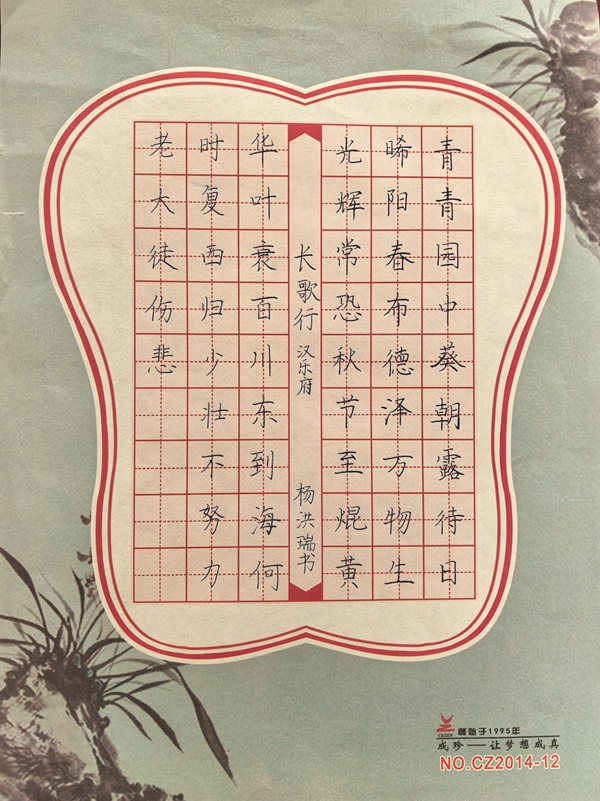 青青园中葵朝露待日
晞阳春布德泽万物生
光辉常恐秋节至焜黄
长歌行 汉乐府 杨洪瑞书
华叶衰百川东到海何
时复西归少壮不努力
老大徒伤悲
CZZEN
始于1995年
成珍——让梦想成真
NO.CZ2014-12